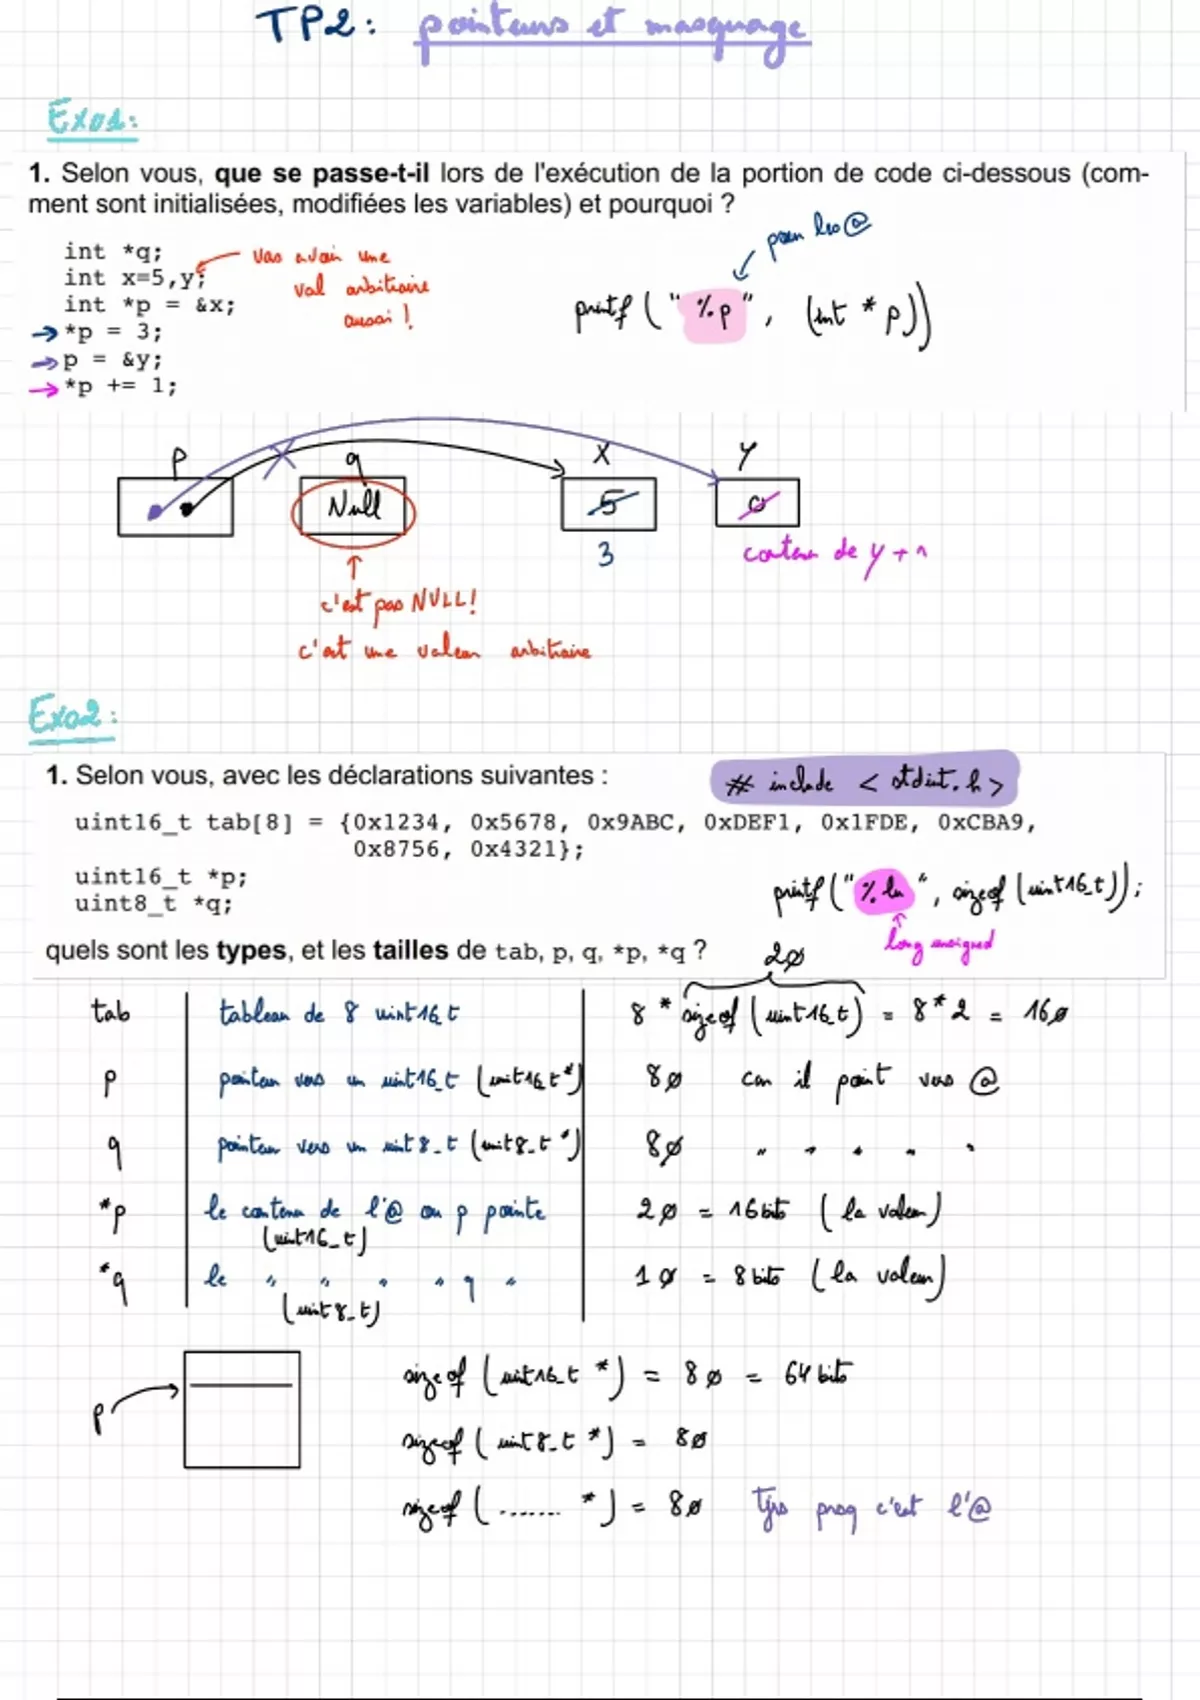 TP2: pointeurs et masquage
Exo1:
1. Selon vous, que se passe-t-il lors de l'exécution de la portion de code ci-dessous (com-
ment sont initialisées, modifiées les variables) et pourquoi ?
pour les @
int *q;
vas avoir une
int x=5,y;
val arbitraire
aussi !
printf ("%p", (int * p))
int *p = &x;
*p = 3;
p = &y;
*p += 1;
p q x y
Null 5 0
3 contenu de y + 1
c'est pas NULL!
c'est une valeur arbitraire
Exo2:
1. Selon vous, avec les déclarations suivantes :
# include < stdint.h >
uint16_t tab[8] = {0x1234, 0x5678, 0x9ABC, 0xDEF1, 0x1FDE, 0xCBA9,
0x8756, 0x4321};
uint16_t *p;
uint8_t *q;
printf ("%lu", sizeof (uint16_t));
long unsigned
quels sont les types, et les tailles de tab, p, q, *p, *q ?
2ø
tab tableau de 8 uint16_t 8 * sizeof (uint16_t) = 8*2 = 16ø
p pointeur vers un uint16_t (uint16_t*) 8ø car il point vers @
q pointeur vers un uint8_t (uint8_t *) 8ø " " " " "
*p le contenu de l'@ ou p pointe 2ø = 16bits (la valeur)
(uint16_t)
*q le " " " " q " 1ø = 8bits (la valeur)
(uint8_t)
p
sizeof (uint16_t *) = 8ø = 64 bits
sizeof (uint8_t *) = 8ø
sizeof (....... *) = 8ø Tjrs prcq c'est l'@